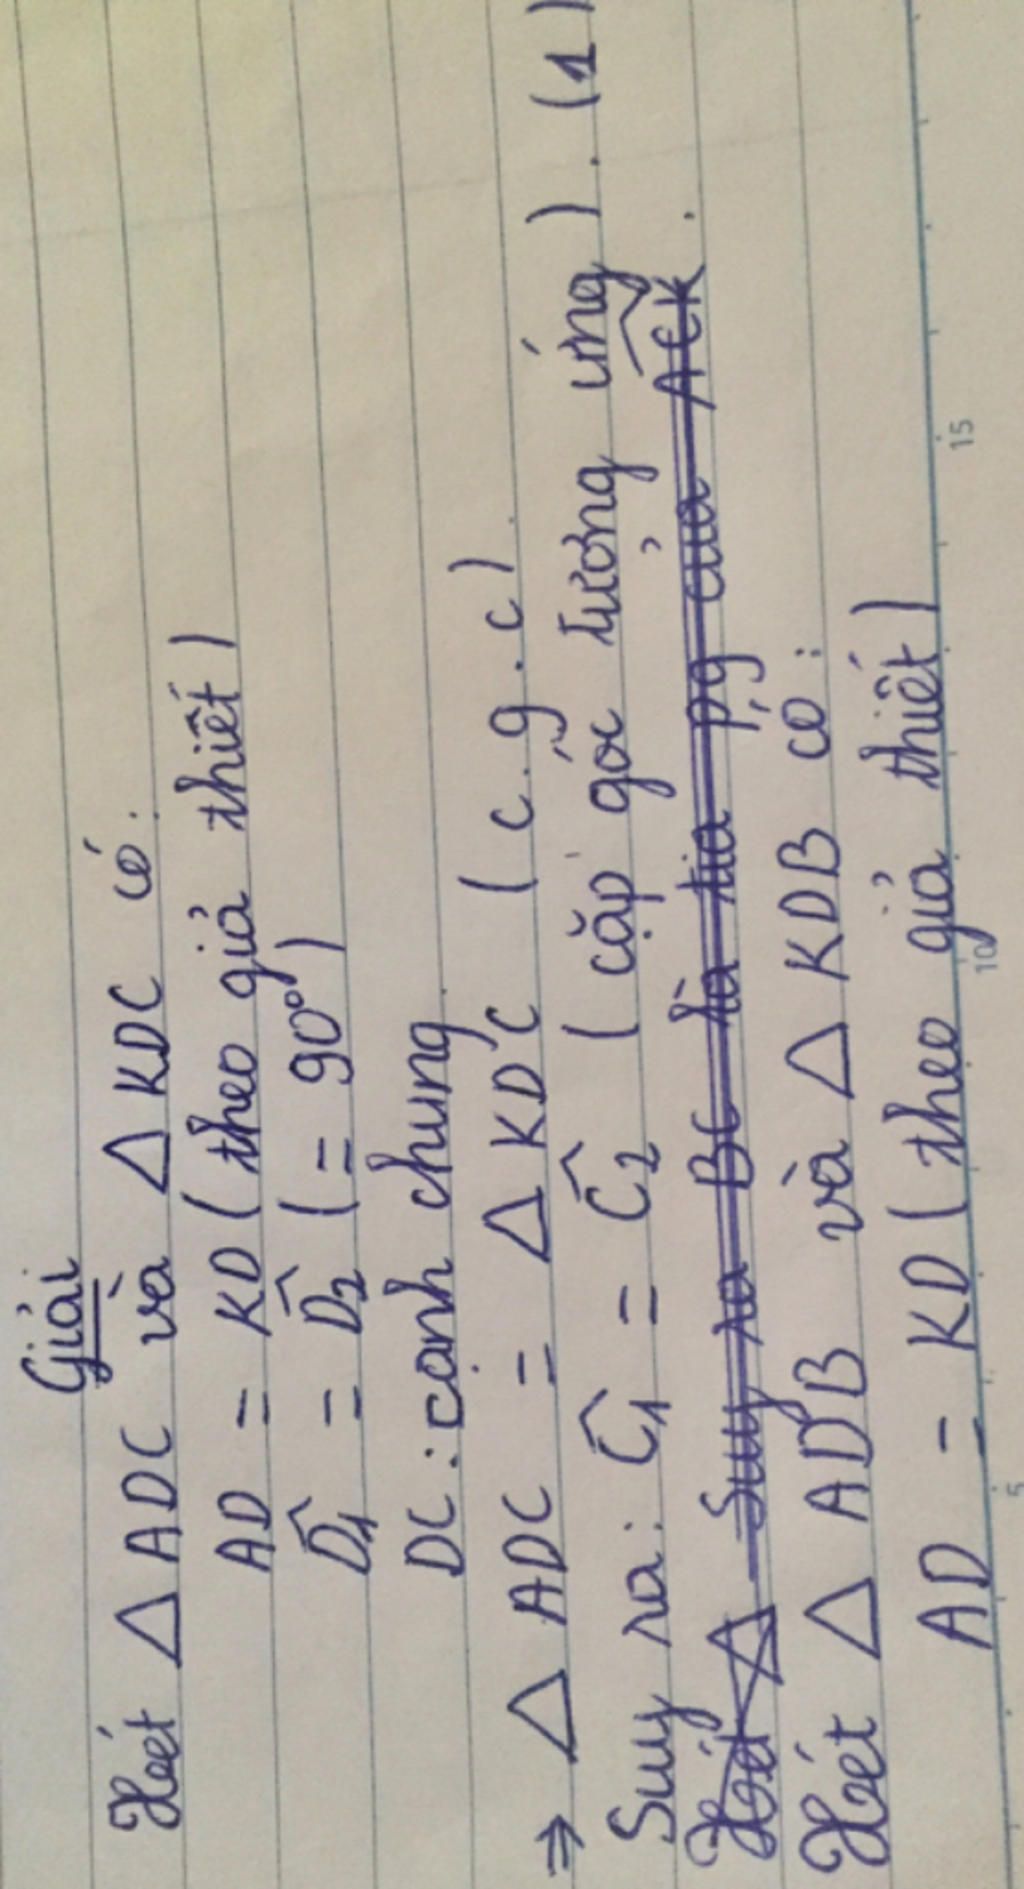 Giải
Xét △ ADC và △ KDC có:
AD = KD ( theo giả thiết )
D̂₁ = D̂₂ ( = 90° )
DC : cạnh chung
⇒ △ ADC = △ KDC ( c . g . c ) .
Suy ra : Ĉ₁ = Ĉ₂ ( cặp góc tương ứng ) . (1)
Xét △ Suy ra BC là tia pg của ACK .
Xét △ ADB và △ KDB có :
AD = KD ( theo giả thiết )
5 10 15